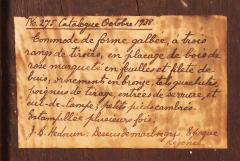 No. 275. Catalogue Octobre 1938
Commode de forme galbée, à trois
rangs de tiroirs, en placage de bois de
rose marqueté en feuilles et filets de
buis, ornements en bronze, tels que chutes
poignées de tirage, entrées de serrure, et
cul-de-lampe; petits pieds cambrés.
Estampillée plusieurs fois
J. B. Hedouin. Dessus de marbre gris. Epoque
Régence.